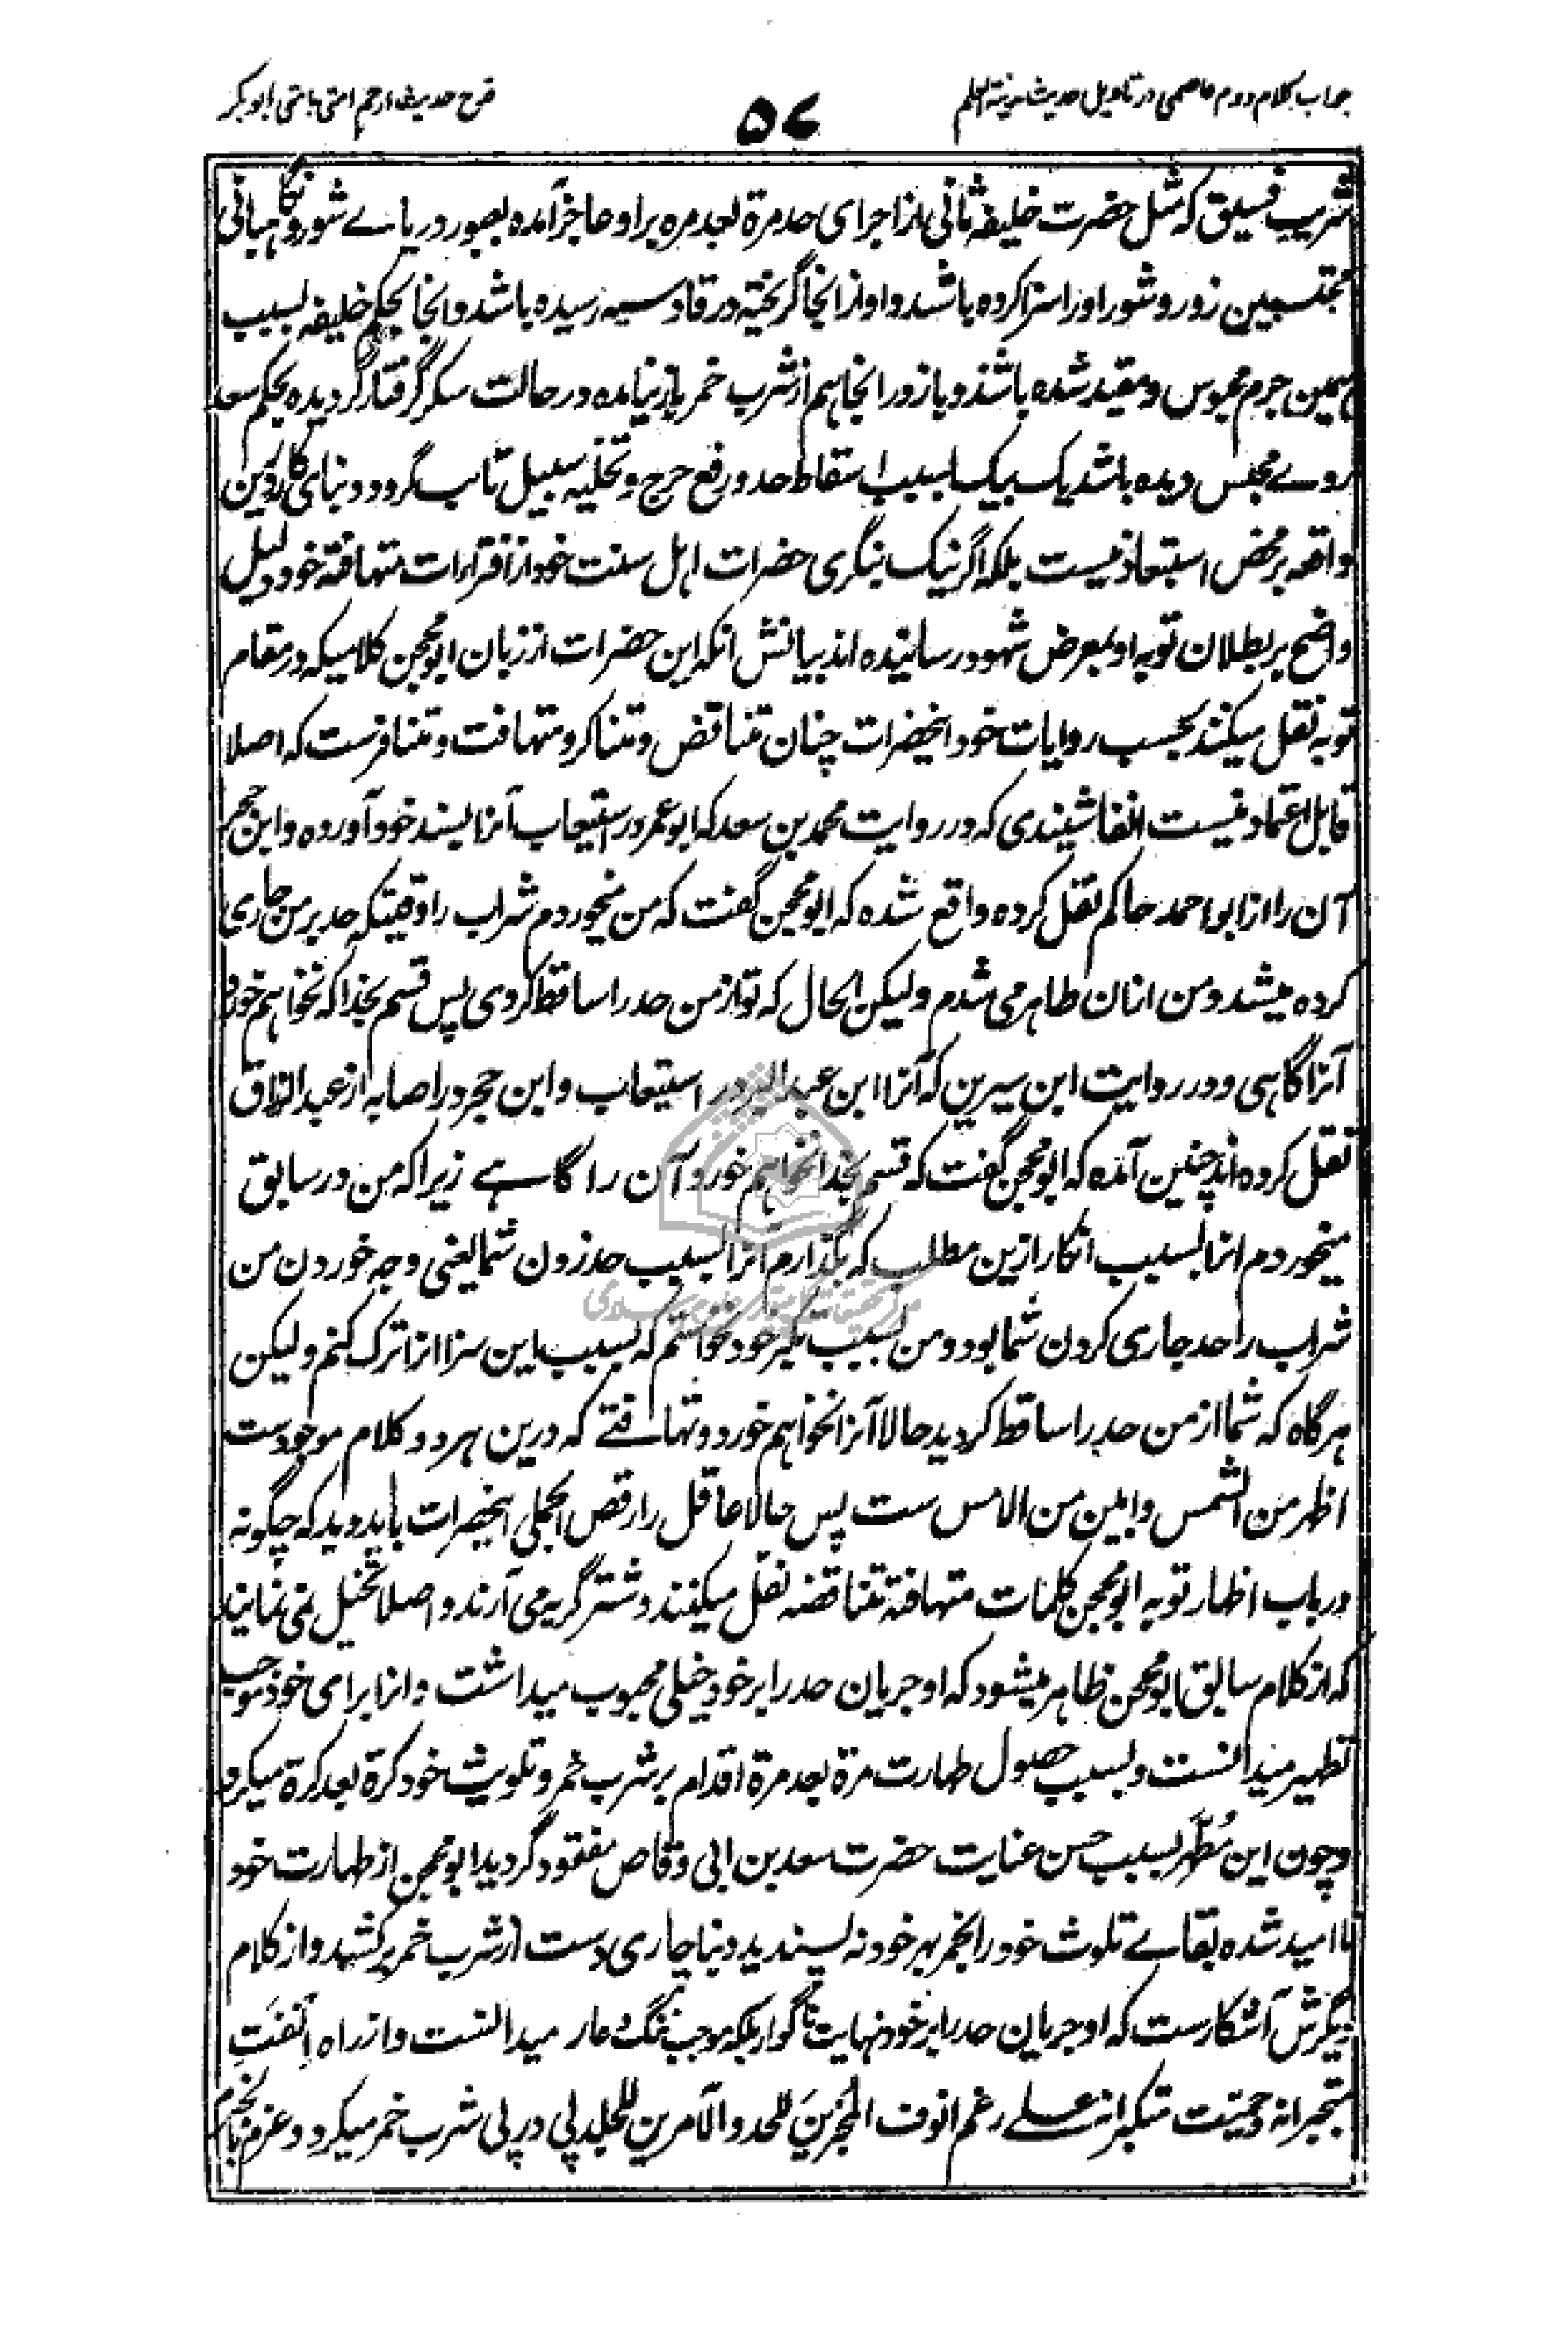 جواب کلام دوم عاصمی در تاویل حدیث مدینة العلم
۵۷
قدح حدیث ارحم امتی بامتی ابو بکر
شریب فسیق که مثل حضرت خلیفه ثانی از اجرای حد مرة بعد مره بر او عاجز آمده بعبور دریاے شور و نگاهبانی
محتسبین زور و شور او را سزا کرده باشد و او از انجا گریخته در قادسیه رسیده باشد و انجا بحکم خلیفه بسبب
همین جرم محبوس و مقید شده باشد و باز در انجا هم از شرب خمر باز نیامده در حالت سکر گرفتار گردیده بحکم سعد
روے محبس دیده باشد یک بیک بسبب اسقاط حد و رفع حرج و تخلیه سبیل تائب گردد و بنای کار درین
واقعه بر محض استبعاد نیست بلکه اگر نیک بنگری حضرات اهل سنت خود از افتراءات متهافتهٔ خود دلیل
واضح بر بطلان توبه او بمعرض شهود رسانیده اند بیانش آنکه این حضرات از زبان ابو محجن کلامیکه در مقام
توبه نقل میکنند بحسب روایات خود اینحضرات چنان متناقض و متناکر و متهافت و متنافرست که اصلا
قابل اعتماد نیست انفا شنیدی که در روایت محمد بن سعد که ابو عمر در استیعاب آنرا بسند خود آورده و ابن حجر
آن را از ابو احمد حاکم نقل کرده واقع شده که ابو محجن گفت که من میخوردم شراب را وقتیکه حد بر من جاری
کرده میشد و من ازان طاهر می شدم و لیکن الحال که تو از من حد را ساقط کردی پس قسم بخدا که نخواهم خورد
آنرا گاهی و در روایت ابن سیرین که آنرا ابن عبد البر در استیعاب و ابن حجر در اصابه از عبد الرزاق
نقل کرده اند چنین آمده که ابو محجن گفت که قسم بخدا نخواهم خورد آن را گاهے زیرا که من در سابق
میخوردم آنرا بسبب انکار ازین مطلب که بگذارم آنرا بسبب حد زدن شما یعنی وجه خوردن من
شراب را حد جاری کردن شما بود و من بسبب تکبر خود نخواستم که بسبب این سزا آنرا ترک کنم و لیکن
هرگاه که شما از من حد را ساقط کردید حالا آنرا نخواهم خورد و تهافتے که درین هر دو کلام موجودست
اظهر من الشمس و ابین من الامس ست پس حالا عاقل را رقص الجملی اینحضرات باید دید که چگونه
در باب اظهار توبه ابو محجن کلمات متهافتهٔ متناقضه نقل میکنند و شتر گربه می آرند و اصلا تخیل نمی نمایند
که از کلام سابق ابو محجن ظاهر میشود که او جریان حد را بر خود خیلی محبوب میداشت و آنرا برای خود موجب
تطهیر میدانست و بسبب حصول طهارت مرة بعد مرة اقدام بر شرب خمر و تلویث خود کرة بعد کرة میکرد
و چون این مُطَهِّر بسبب حسن عنایت حضرت سعد بن ابی وقاص مفقود گردید ابو محجن از طهارت خود
نا امید شده بقاے تلوث خود را بخمر بهر خود نه پسندید و بناچاری دست از شرب خمر بر کشید و از کلام
دیگرش آشکارست که او جریان حد را بر خود نهایت ناگوار بلکه موجب ننگ و عار میدانست و از راه اَنَفَتِ
متجبرانه و حمیّت متکبرانه علے رغم انوف المُجرین للحد و الآمرین للجلد پی در پی شرب خمر میکرد و عزم بالجزم